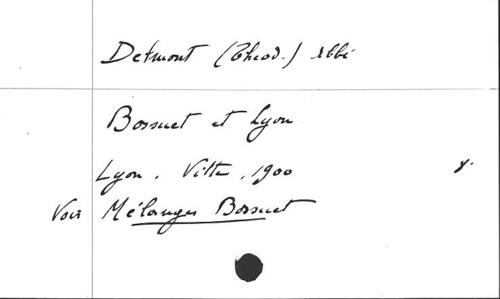 Delmont (Théod.) Abbé
Bossuet et Lyon
Lyon. Vitte, 1900 8.
Voir Mélanges Bossuet